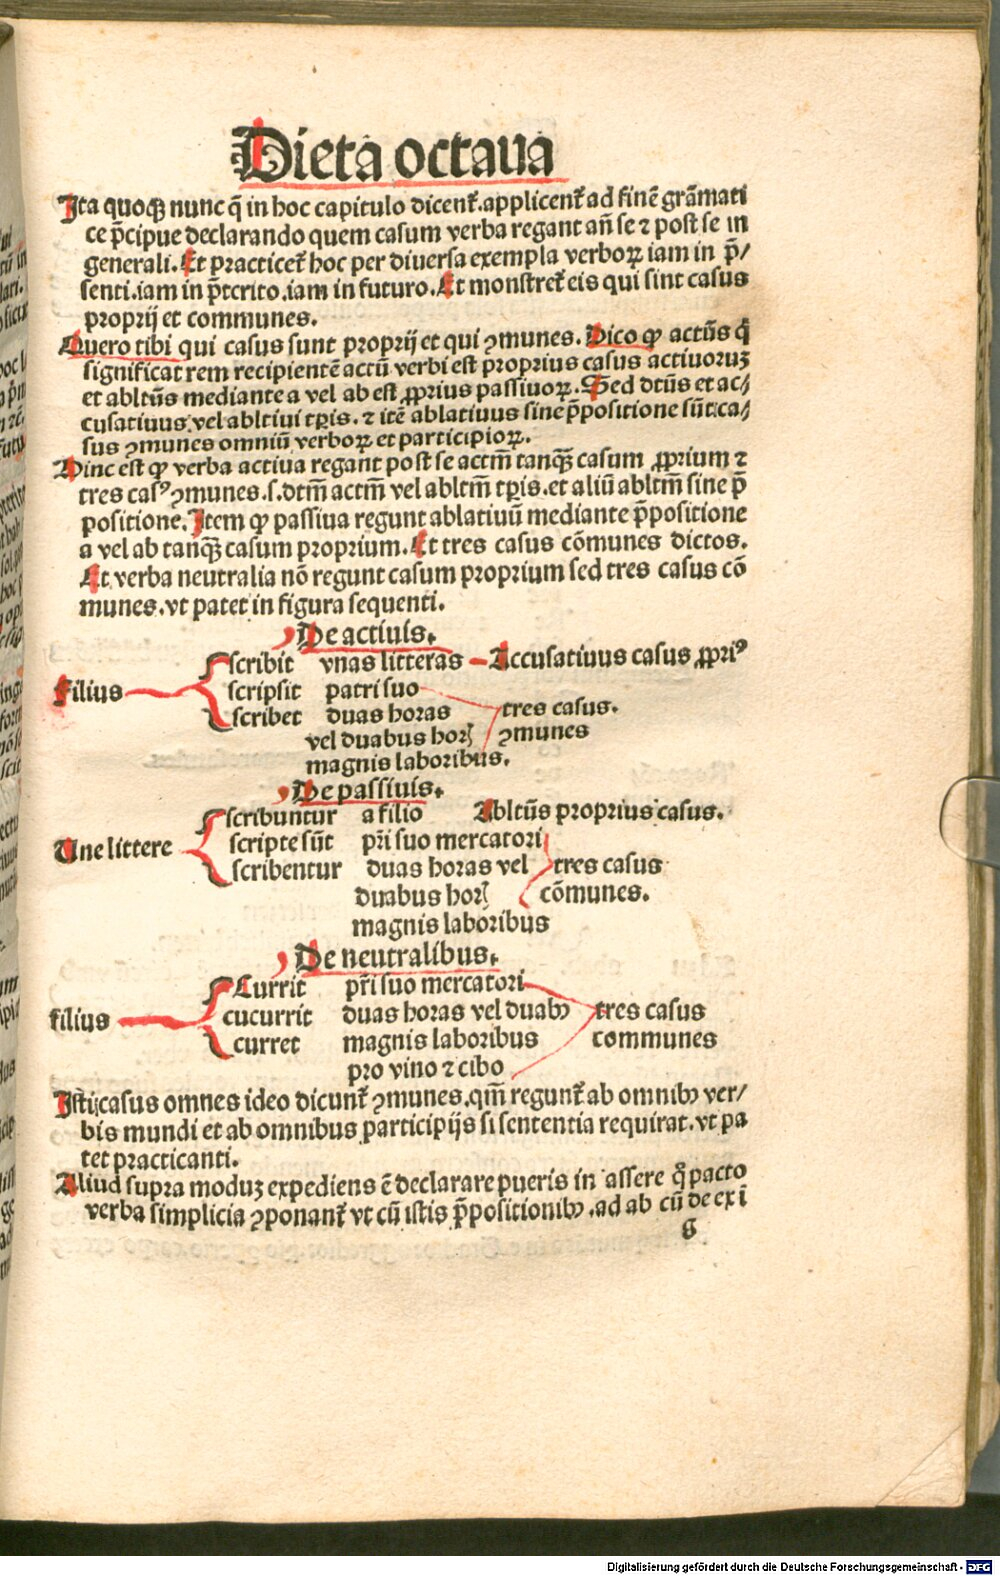 Dieta octaua
Ita quoqꝫ nunc q̄ in hoc capitulo dicent᷑.applicent᷑ ad finē grāmati
ce p̄cipue declarando quem casum verba regant an̄ se ⁊ post se in
generali.Et practicet᷑ hoc per diuersa exempla verboꝝ iam in p̄/
senti.iam in p̄terito.iam in futuro.Et monstret᷑ eis qui sint casus
proprij et communes.
Quero tibi qui casus sunt proprij et qui ꝯmunes. Dico ꝙ actūs q̄
significat rem recipientē actū verbi est proprius casus actiuoruꝫ
et abltūs mediante a vel ab est ꝓprius passiuoꝝ.Sed dtūs et ac/
cusatiuus,vel abltiui tꝑis. ⁊ itē ablatiuus sine p̄positione sūt ca/
sus ꝯmunes omniū verboꝝ et participioꝝ.
Hinc est ꝙ verba actiua regant post se actm̄ tanqꝫ casum ꝓprium ⁊
tres casꝰ ꝯmunes.s.dtm̄ actm̄ vel abltm̄ tꝑis.et aliū abltm̄ sine p̄
positione.Item ꝙ passiua regunt ablatiuū mediante p̄positione
a vel ab tanqꝫ casum proprium.Et tres casus cōmunes dictos.
Et verba neutralia nō regunt casum proprium sed tres casus cō
munes.vt patet in figura sequenti.
De actiuis.
scribit vnas litteras Accusatiuus casus ꝓpriꝰ
Filius scripsit patri suo
scribet duas horas tres casus.
vel duabus horꝭ ꝯmunes
magnis laboribus.
De passiuis.
scribuntur a filio Abltūs proprius casus.
Une littere scripte sūt pr̄i suo mercatori
scribentur duas horas vel tres casus
duabus horꝭ cōmunes.
magnis laboribus
De neutralibus.
Currit pr̄i suo mercatori
filius cucurrit duas horas vel duabꝰ tres casus
curret magnis laboribus communes
pro vino ⁊ cibo
Isti casus omnes ideo dicunt᷑ ꝯmunes.qm̄ regunt᷑ ab omnibꝰ ver/
bis mundi et ab omnibus participijs si sententia requirat.vt pa
tet practicanti.
Aliud supra moduꝫ expediens ē declarare pueris in assere q̄ pacto
verba simplicia ꝯponant᷑ vt cū istis p̄positionibꝰ.ad ab cū de ex ī
g
Digitalisierung gefördert durch die Deutsche Forschungsgemeinschaft - DFG